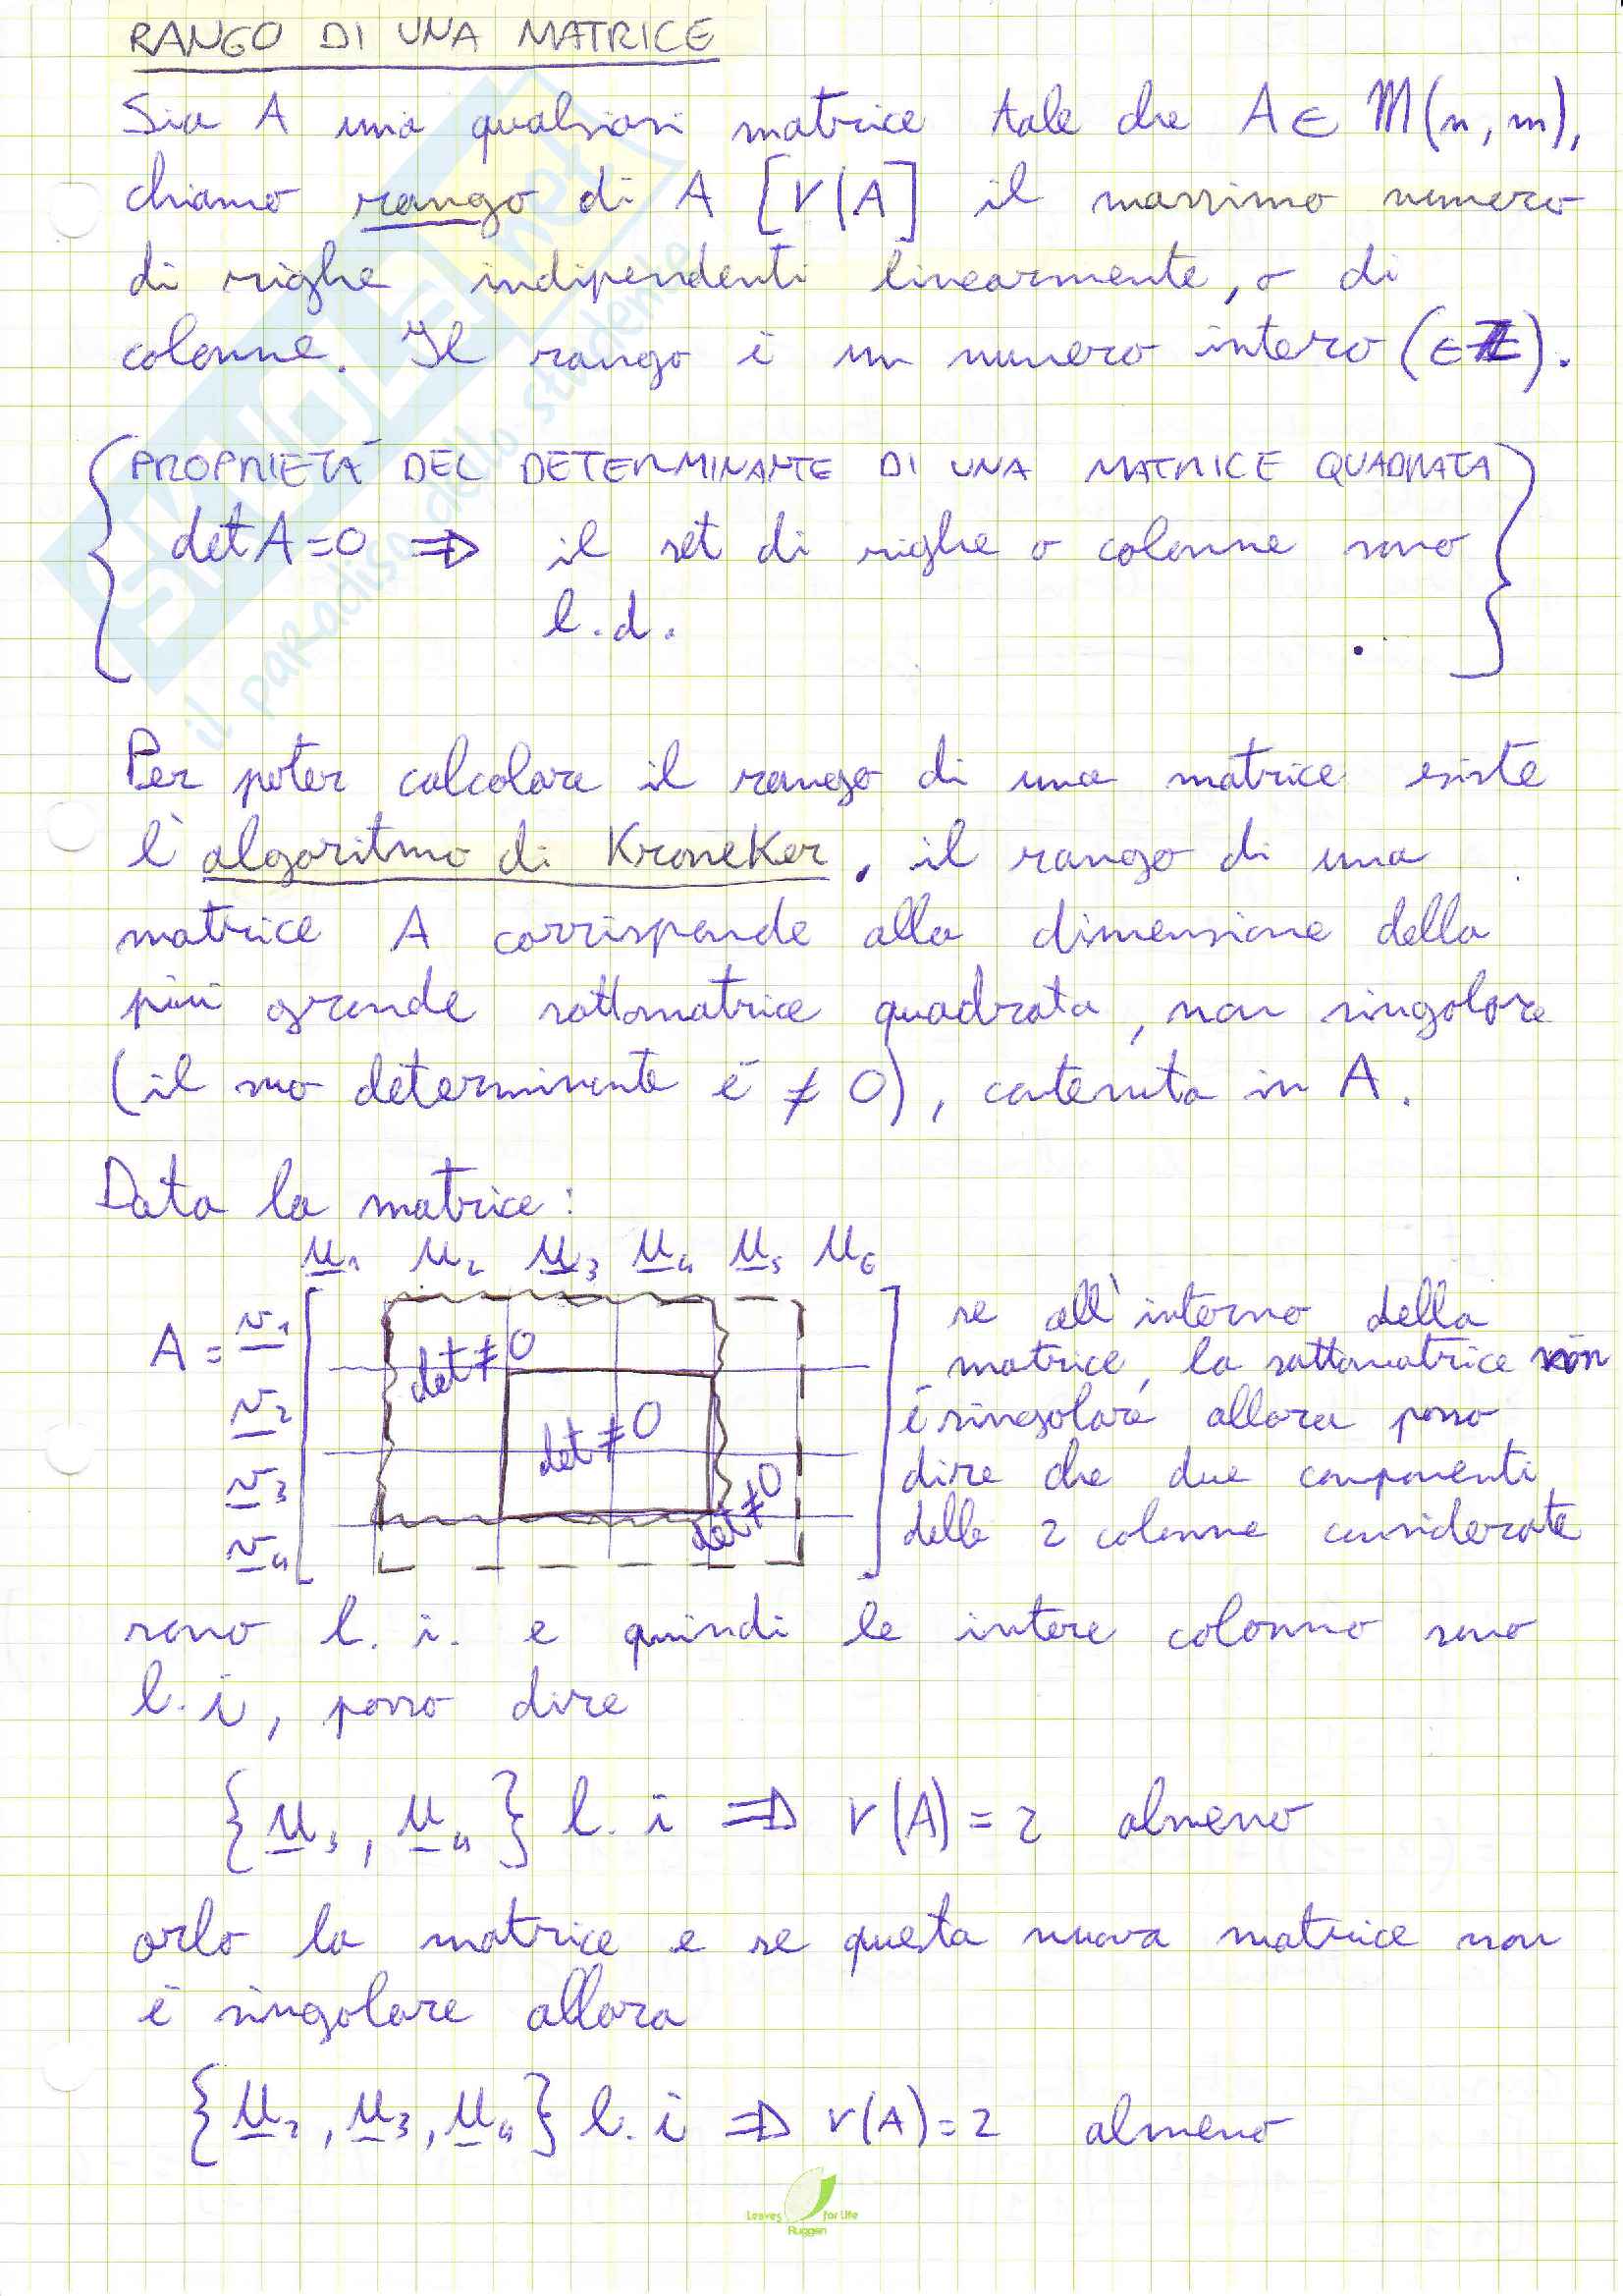 RANGO DI UNA MATRICE
Sia A una qualsiasi matrice tale che A ∈ M(n, m),
chiamo rango di A [r(A] il massimo numero
di righe indipendenti linearmente, o di
colonne. Il rango è un numero intero (∈ Z).
PROPRIETÁ DEL DETERMINANTE DI UNA MATRICE QUADRATA
det A = 0 ⇒ il set di righe o colonne sono
l.d.
Per poter calcolare il rango di una matrice esiste
l'algoritmo di KroneKer, il rango di una
matrice A corrisponde alla dimensione della
più grande sottomatrice quadrata, non singolare
(il suo determinante è ≠ 0), contenuta in A.
Data la matrice:
u1 u2 u3 u4 u5 u6
A = v1
v2
v3
v4
det ≠ 0
det ≠ 0
det ≠ 0
se all'interno della
matrice, la sottomatrice non
è singolare allora posso
dire che due componenti
delle 2 colonne considerate
sono l. i. e quindi le intere colonno sono
l. i, posso dire
{u3, u4} l. i ⇒ r(A) = 2 almeno
orlo la matrice e se questa nuova matrice non
è singolare allora
{u2, u3, u4} l. i ⇒ r(A) = 2 almeno
skuola.net
il paradiso dello studente
Leaves for life
Ruggeri